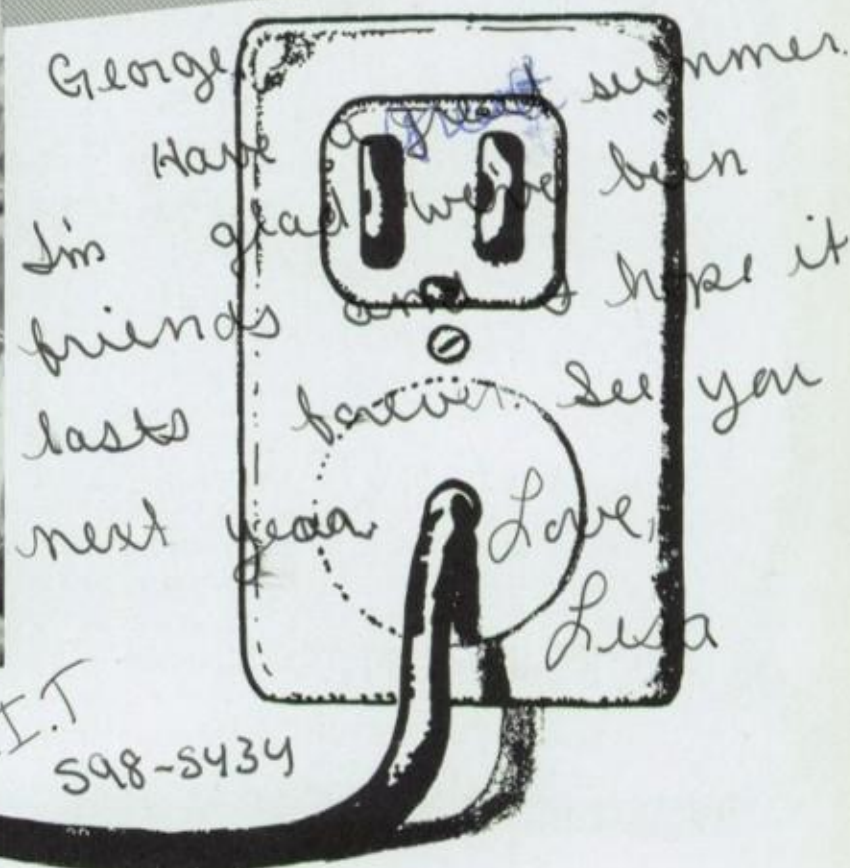 George,
Have a great summer.
I'm glad we've been
friends and I hope it
lasts forever. See you
next year. Love,
Lisa
I.T
598-5434